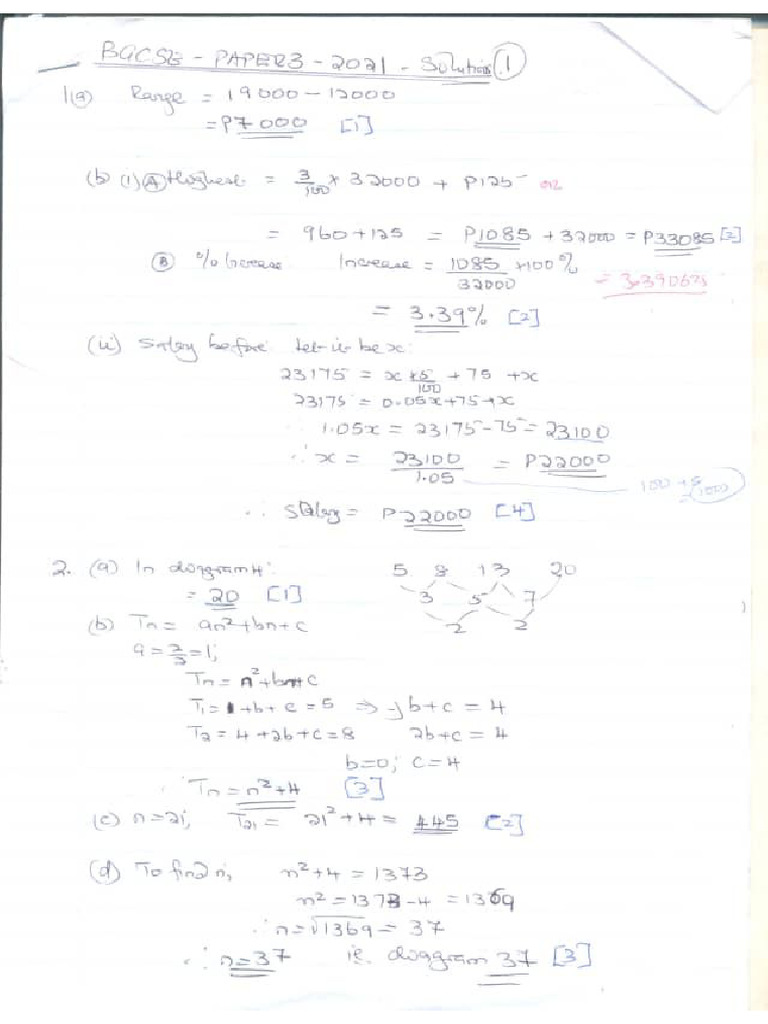 BGCSE - PAPER 3 - 2021 - Solutions 1
1(a) Range = 19000 - 12000
= P7000 [1]
(b (i) A Highest = 3/100 × 32000 + P125 or
= 960 + 125 = P1085 + 32000 = P33085 [2]
B % Increase Increase = 1085/32000 × 100%
= 3.390625
= 3.39% [2]
(ii) Salary before let it be x:
23175 = x × 5/100 + 75 + x
23175 = 0.05x + 75 + x
1.05x = 23175 - 75 = 23100
∴ x = 23100/1.05 = P22000
∴ Salary = P22000 [4]
2. (a) In diagram 4: 5 8 13 20
= 20 [1] 3 5 7
(b) Tn = an² + bn + c 2 2
a = 2/2 = 1;
Tn = n² + bn + c
T1 = 1 + b + c = 5 ⇒ b + c = 4
T2 = 4 + 2b + c = 8 2b + c = 4
b = 0; c = 4
∴ Tn = n² + 4 [3]
(c) n = 21, T21 = 21² + 4 = 445 [2]
(d) To find n, n² + 4 = 1373
n² = 1373 - 4 = 1369
∴ n = √1369 = 37
∴ n = 37 ie. diagram 37 [3]